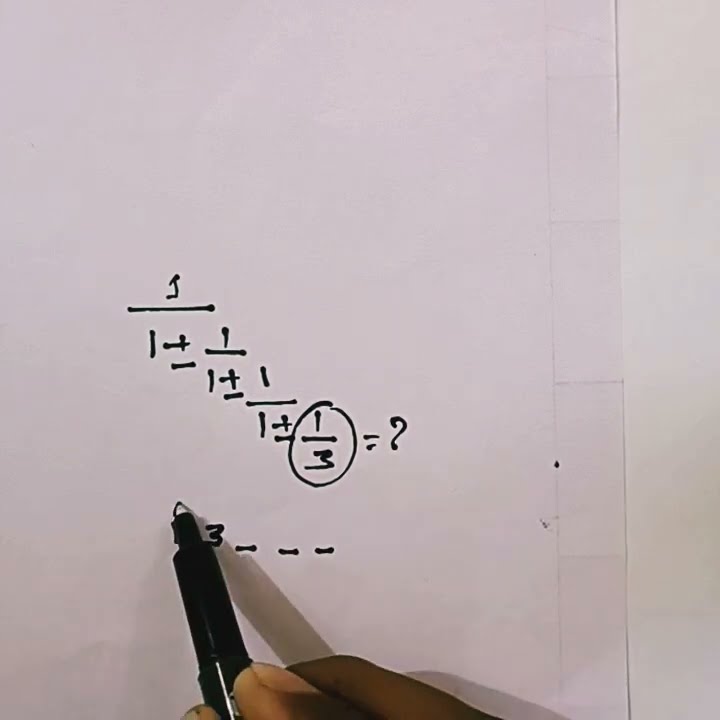 1
1 + 1
1 + 1
1 + 1 = ?
3
3 _ _ _